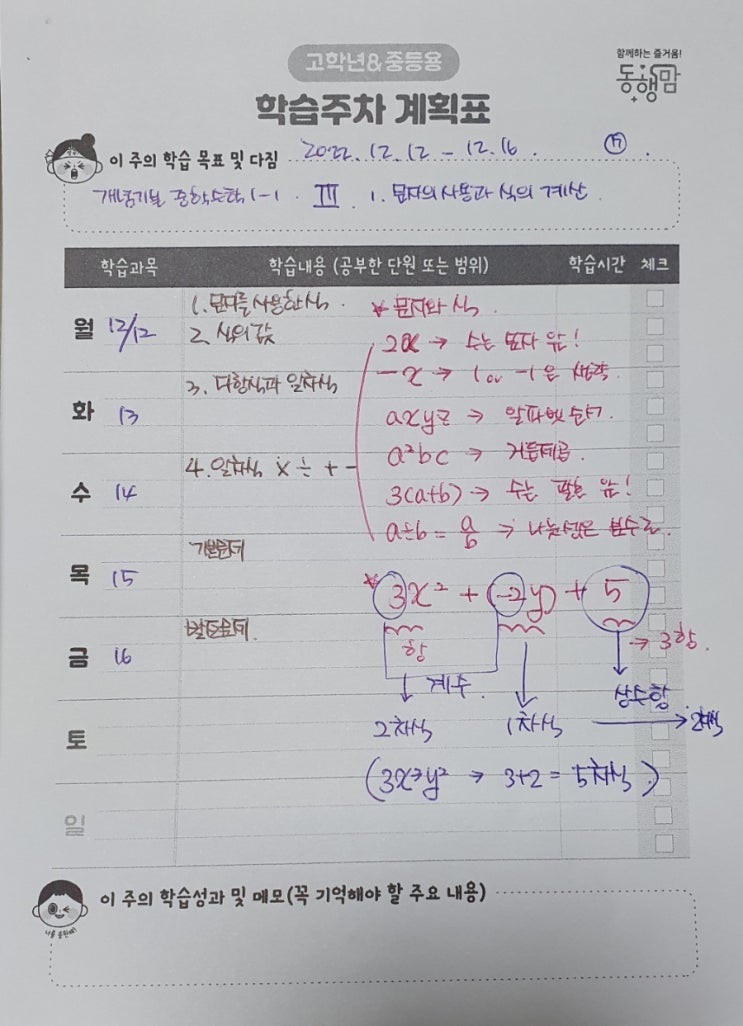 고학년&중등용
함께하는 즐거움!
동행맘
학습주차 계획표
이 주의 학습 목표 및 다짐 2022.12.12 - 12.16. ⑰.
개념기본 중학수학 1-1. Ⅲ 1. 문자의 사용과 식의 계산
학습과목 학습내용 (공부한 단원 또는 범위) 학습시간 체크
월 12/12
1. 문자를 사용한 식.
2. 식의 값
화 13
3. 다항식과 일차식
수 14
4. 일차식 × ÷ + -
목 15
기본문제
금 16
발전문제.
토
일
* 문자와 식.
2x → 수는 문자 앞!
-x → 1 or -1은 생략.
axyz → 알파벳순서.
a²bc → 거듭제곱.
3(a+b) → 수는 괄호 앞!
a÷b = a/b → 나눗셈은 분수로.
* 3x² + (-2y) + 5
항 → 3항.
계수. 상수항.
2차식 1차식 → 2차식
(3x³y² → 3+2 = 5차식.)
이 주의 학습성과 및 메모(꼭 기억해야 할 주요 내용)
나를 응원해!